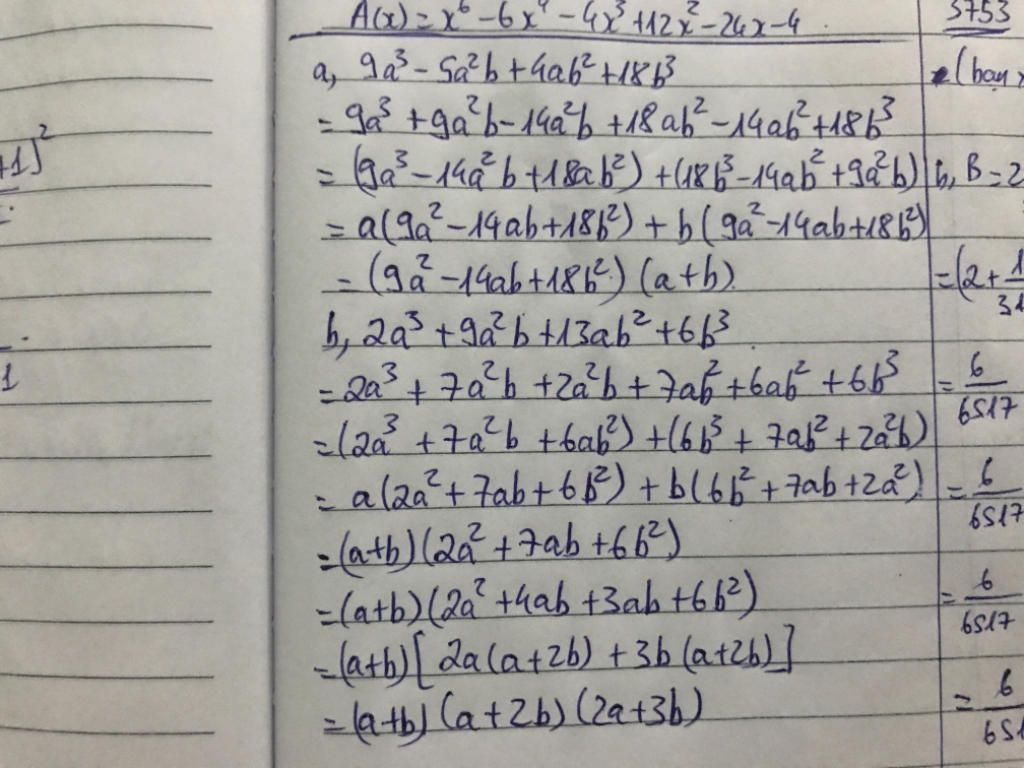 +1)²
1
A(x) = x⁶ - 6x⁴ - 4x³ + 12x² - 24x - 4
a, 9a³ - 5a²b + 4ab² + 18b³
= 9a³ + 9a²b - 14a²b + 18ab² - 14ab² + 18b³
= (9a³ - 14a²b + 18ab²) + (18b³ - 14ab² + 9a²b)
= a(9a² - 14ab + 18b²) + b(9a² - 14ab + 18b²)
= (9a² - 14ab + 18b²) (a + b)
b, 2a³ + 9a²b + 13ab² + 6b³
= 2a³ + 7a²b + 2a²b + 7ab² + 6ab² + 6b³
= (2a³ + 7a²b + 6ab²) + (6b³ + 7ab² + 2a²b)
= a(2a² + 7ab + 6b²) + b(6b² + 7ab + 2a²)
= (a+b) (2a² + 7ab + 6b²)
= (a+b) (2a² + 4ab + 3ab + 6b²)
= (a+b) [2a(a+2b) + 3b(a+2b)]
= (a+b) (a+2b) (2a+3b)
3753
(bạn
b, B = 2
= (2 + 1
31
= 6
6517
= 6
6517
= 6
6517
= 6
651